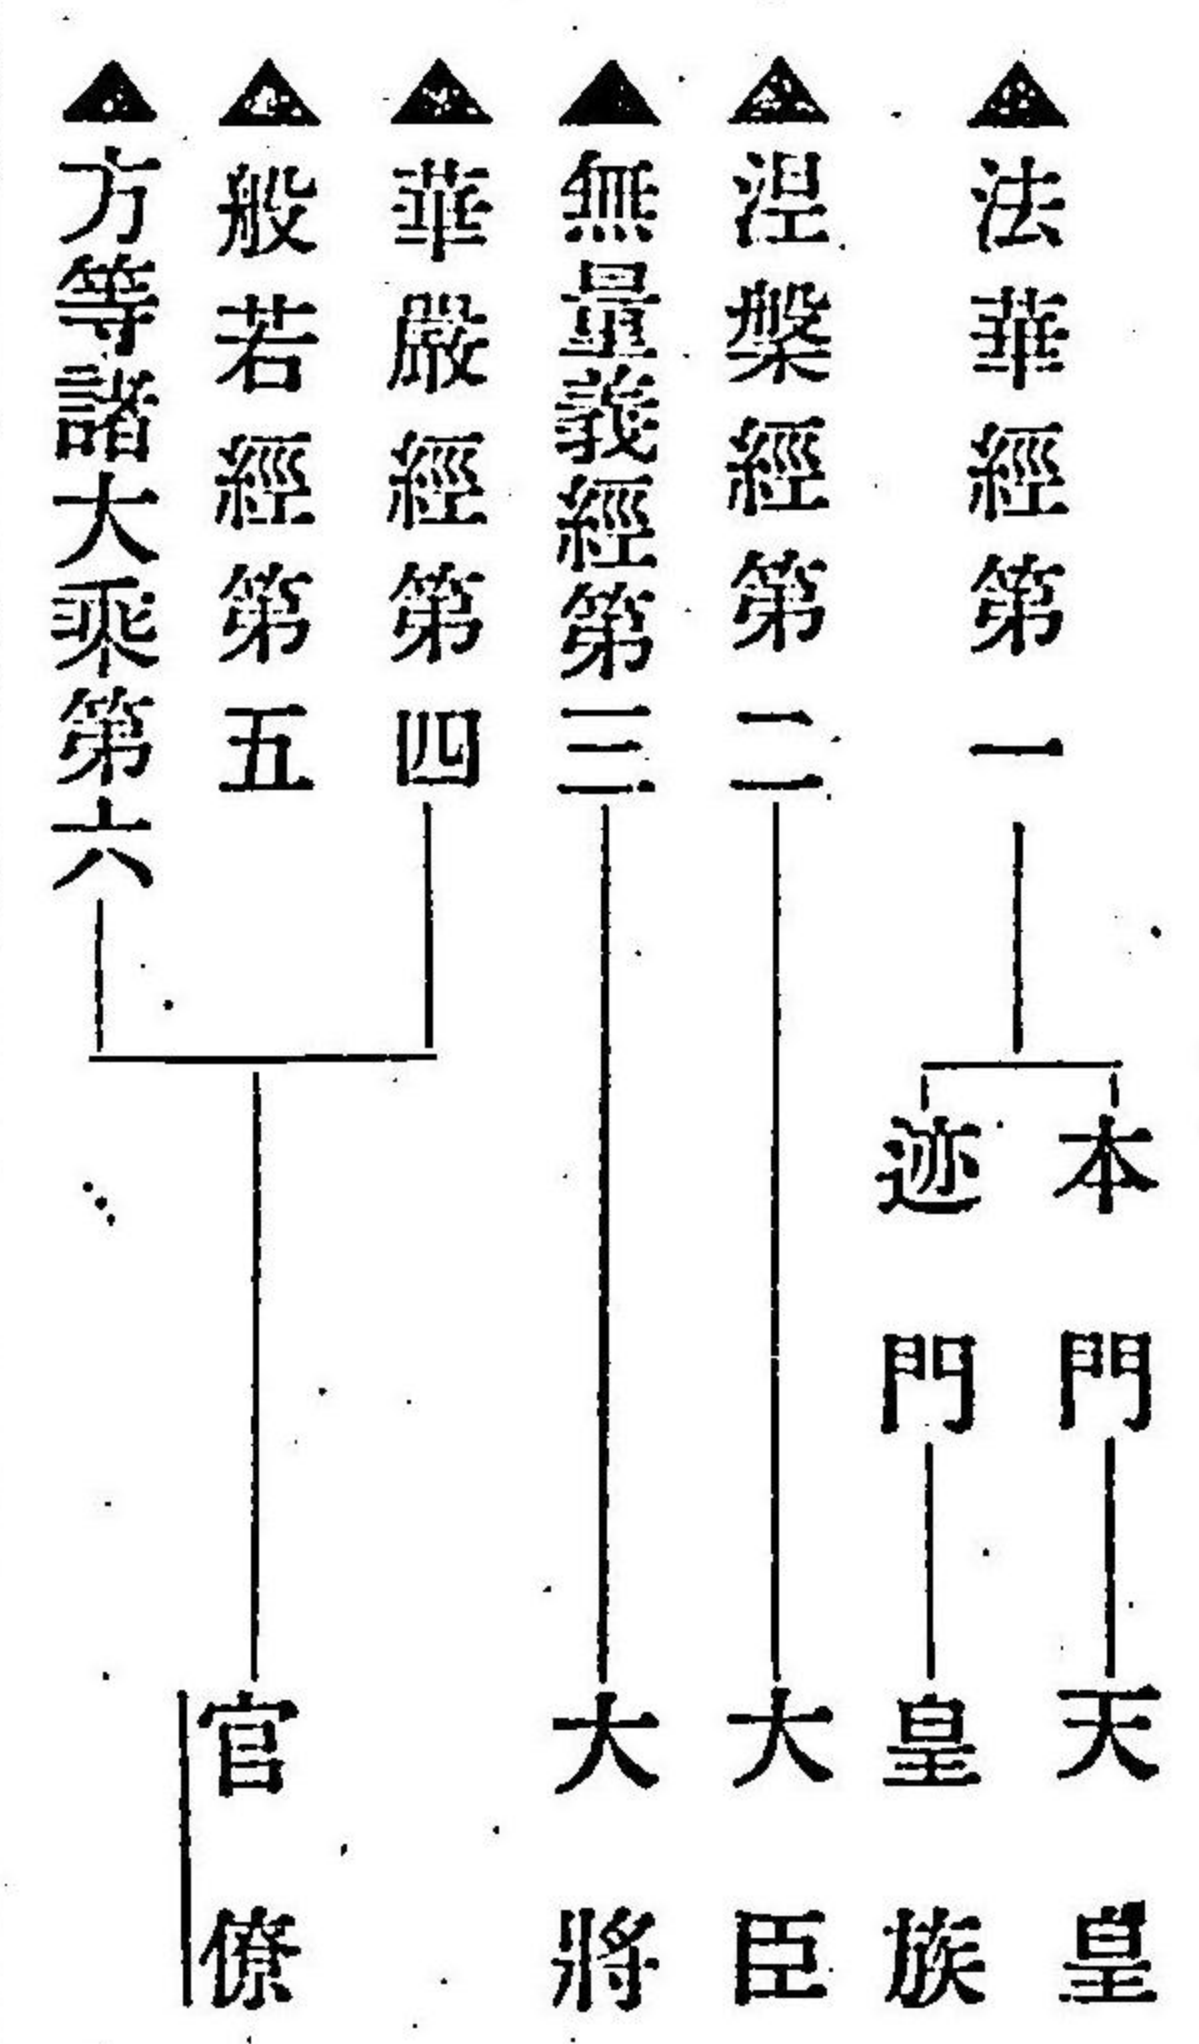 ▲法華經第一
本門
天皇
迹門
皇族
▲涅槃經第二
大臣
▲無量義經第三
大將
▲華嚴經第四
▲般若經第五
▲方等諸大乘第六
官僚